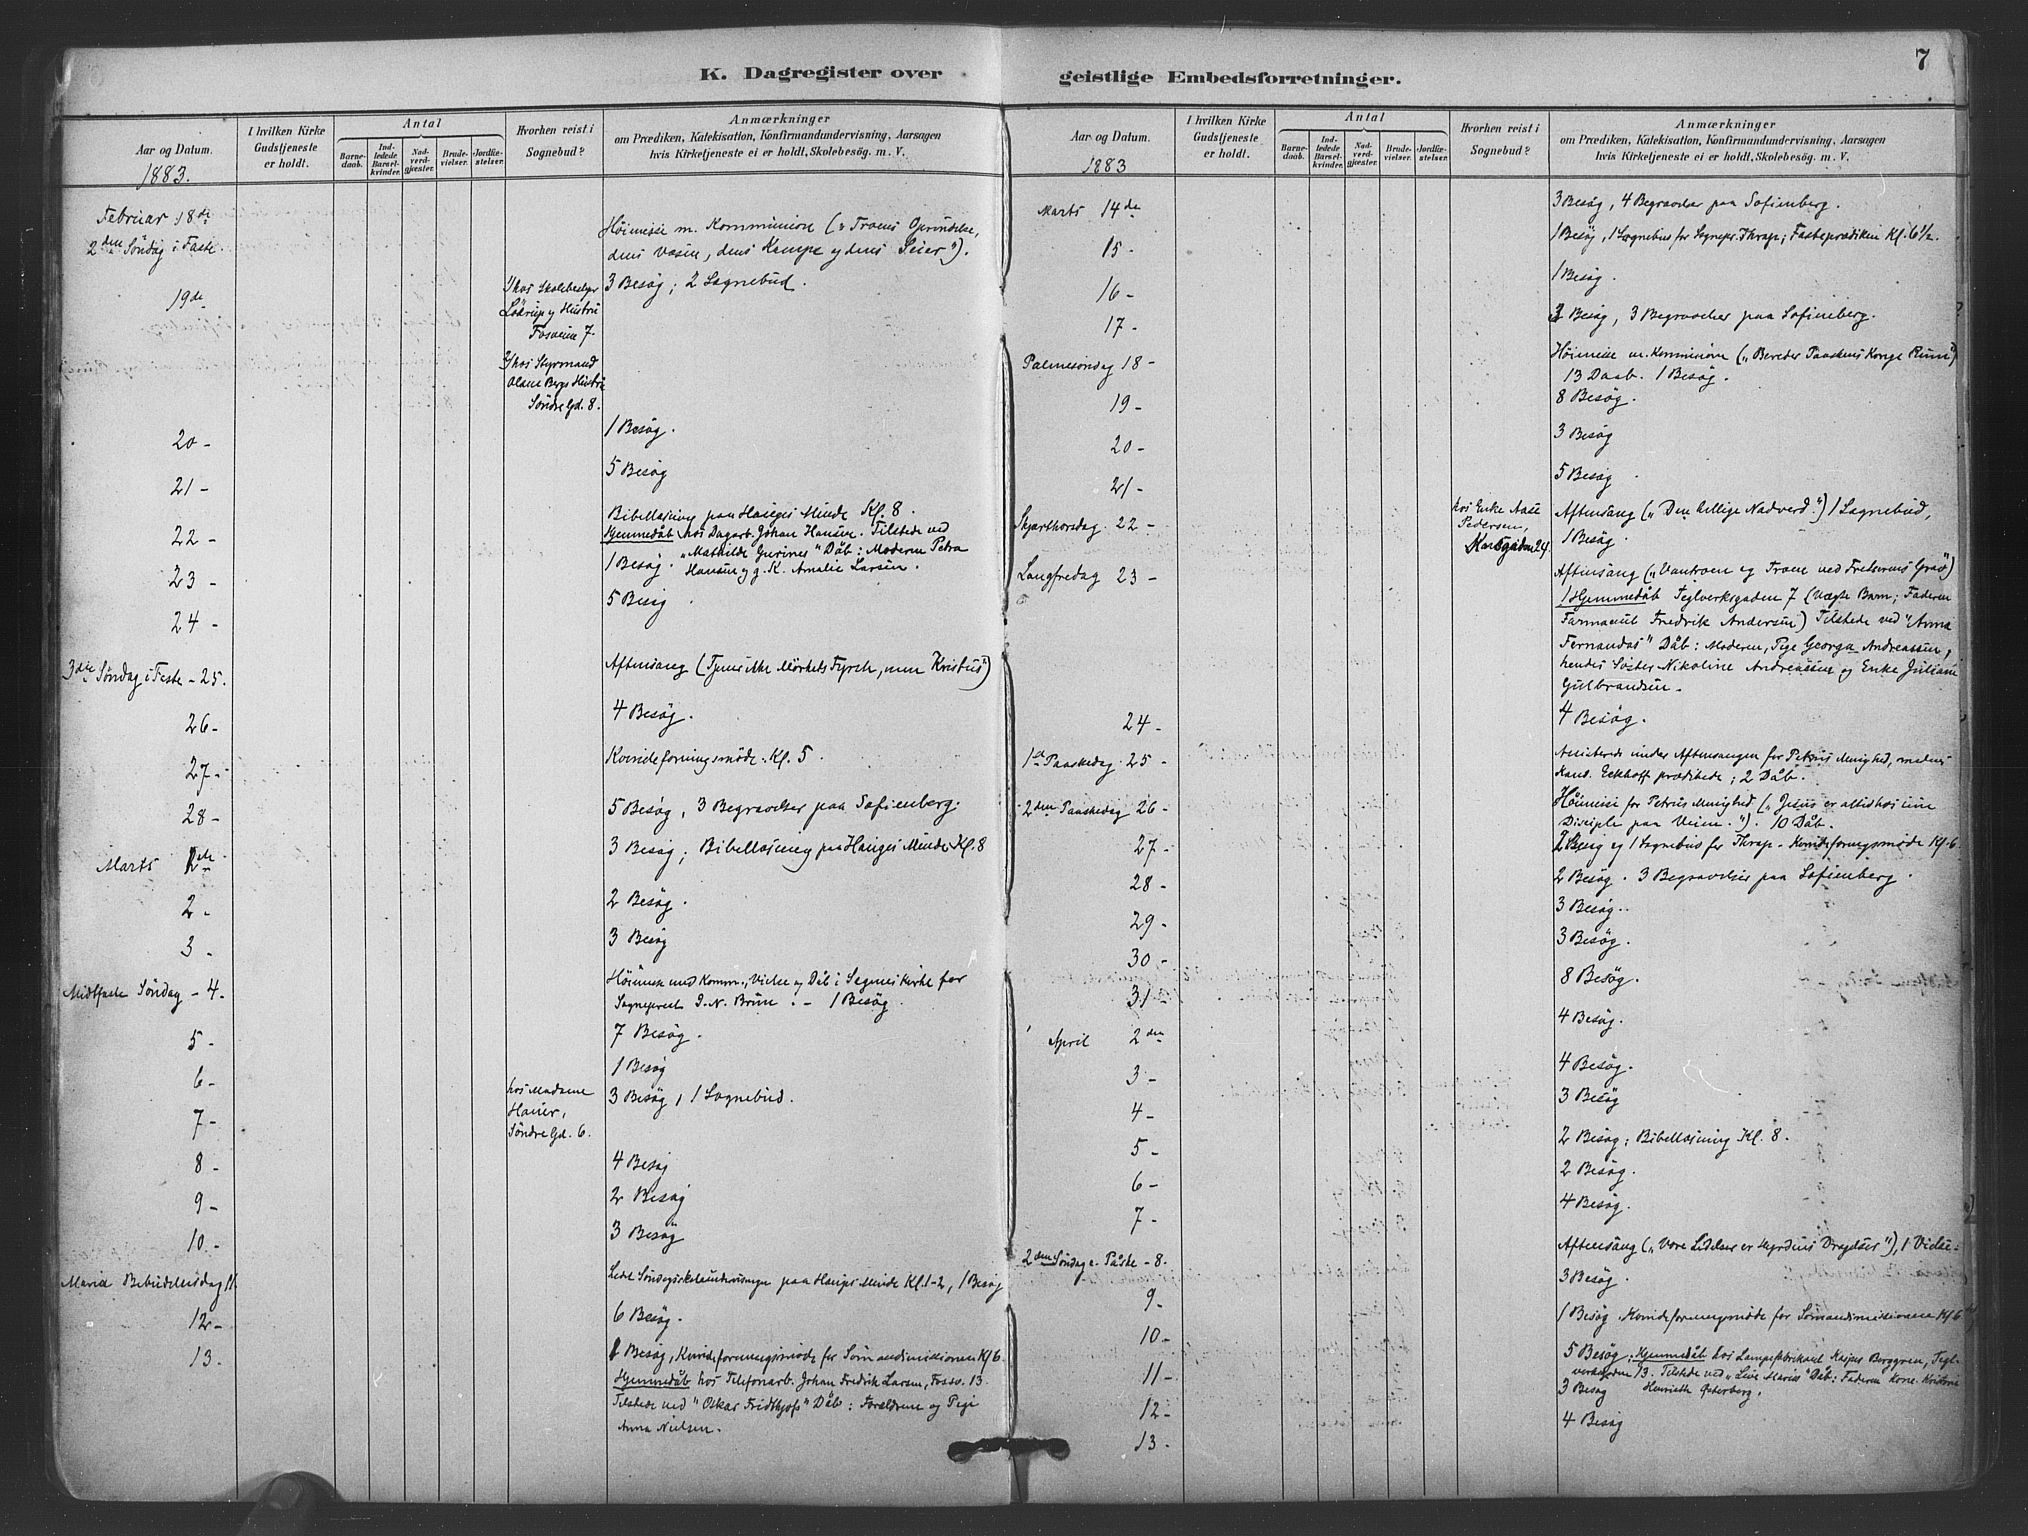 K. Dagregister over
geistlige Embedsforretninger.
7
Aar og Datum.
1883.
I hvilken Kirke
Gudstjeneste
er holdt.
Antal
Barne-
daab.
Ind-
ledede
Barsel-
kvinder.
Nad-
verd-
gjæster.
Brude-
vielser.
Jordfæ-
stelser.
Hvorhen reist i
Sognebud?
Anmærkninger
om Prædiken, Katekisation, Konfirmandundervisning, Aarsagen
hvis Kirketjeneste ei er holdt, Skolebesög. m. V.
Februar 18de
2den Söndag i Faste.
Höimesse m. Kommunion („Troens Oprindelse,
dens Væsen, dens Kampe og dens Seier").
19de
1) hos Skolebestyr
Lödrup og Hustru
Fosveien 7.
3 Besög; 2 Sognebud.
2) hos Styrmand
Olaus Bergs Hustru
Söndre Gd. 8.
20 -
1 Besög.
21 -
5 Besög
22 -
Bibellæsning paa Hauges Minde Kl. 8.
Hjemmedåb hos Dagarb. Johan Hansen. Tilstede ved
"Mathilde Gurines" Dåb: Moderen Petra
Hansen og g. K. Amalie Larsen.
23 -
1 Besög.
24 -
5 Besög.
3die Söndag i Faste - 25.
Aftensang (Tjener ikke Mörkets Fyrste, men Kristus")
26 -
4 Besög.
27 -
Kvindeforeningsmöde. Kl. 5.
28 -
5 Besög, 3 Begravelser paa Sofienberg.
Marts 1ste
3 Besög; Bibellæsning paa Hauges Minde Kl. 8
2 -
2 Besög.
3 -
3 Besög
Midtfaste Söndag - 4.
Höimesse med Komm., Vielse og Dåb i Sagenes Kirke for
Sognepræst J. N. Brun. - 1 Besög.
5 -
7 Besög.
6 -
1 Besög
7 -
hos Madame
Hauer,
Söndre Gd. 6.
3 Besög, 1 Sognebud.
8 -
4 Besög
9 -
2 Besög
10 -
3 Besög
Mariæ Bebudelsesdag 11
Ledet Söndagsskoleundervisningen paa Hauges Minde Kl. 1-2, 1 Besög
12 -
6 Besög.
13.
1 Besög, Kvindeforeningsmöde for Sömandsmissionen Kl 6.
Hjemmedåb hos Telefonarb. Johan Fredrik Larsen, Fossv. 13.
Tilstede ved "Oskar Fridthjofs" Dåb: Forældrene og Pige
Anna Nielsen.
Aar og Datum.
1883
I hvilken Kirke
Gudstjeneste
er holdt.
Antal
Barne-
daab.
Ind-
ledede
Barsel-
kvinder.
Nad-
verd-
gjæster.
Brude-
vielser.
Jordfæ-
stelser.
Hvorhen reist i
Sognebud?
Anmærkninger
om Prædiken, Katekisation, Konfirmandundervisning, Aarsagen
hvis Kirketjeneste ei er holdt, Skolebesög. m. V.
Marts 14de
3 Besög, 4 Begravelser paa Sofienberg.
15 -
1 Besög, 1 Sognebud for Sognepr. Thrap; Fasteprædiken Kl. 6 1/2.
16 -
1 Besög.
17 -
3 Besög, 3 Begravelser paa Sofienberg.
Palmesöndag 18 -
Höimesse m. Kommunion („Bereder Paaskens Konge Rum")
13 Daab. 1 Besög.
19 -
8 Besög.
20 -
3 Besög
21 -
5 Besög
Skjærthorsdag. 22 -
hos Enke Aase
Pedersen,
Korsgaden 24.
Aftensang („Den hellige Nadverd.") 1 Sognebud,
1 Besög.
Langfredag 23 -
Aftensang („Vantroen og Troen ved Frelserens Grav")
1 Hjemmedåb Teglverksgaden 7 (uægte Barn; Faderen
Farmaceut Fredrik Andersen) Tilstede ved "Anna
Fernandas" Dåb: Moderen, Pige Georga Andreassen,
hendes Söster Nikoline Andreassen og Enke Juliane
Gulbrandsen.
24 -
4 Besög.
1ste Paaskedag. 25 -
Assisterede under Aftensangen for Petrus Menighed, medens
Kand. Eckhoff prædikede; 2 Dåb.
2den Paaskedag 26 -
Höimesse for Petrus Menighed („Jesus er altid hos sine
Disciple paa Veien."). 10 Dåb.
27 -
2 Besög og 1 Sognebud for Thrap - Kvindeforeningsmöde Kl. 6
28 -
2 Besög. 3 Begravelser paa Sofienberg.
29 -
3 Besög.
30 -
3 Besög.
31 -
8 Besög.
April 2den
4 Besög.
3 -
4 Besög.
4 -
3 Besög
5 -
2 Besög; Bibellæsning Kl. 8.
6 -
2 Besög.
7 -
4 Besög.
2den Söndag e. Påske - 8.
Aftensang („Vore Lidelser er Hyrdens Dragelser"), 1 Vielse.
9 -
3 Besög.
10 -
1 Besög. Kvindeforeningsmöde for Sömandsmissionen Kl 6
11 -
5 Besög. Hjemmedåb hos Lampefabrikant Kasper Berggren, Tegl-
verksgaden 13. Tilstede ved „Live Maries" Dåb: Faderen
Henriette Österberg.
12 -
3 Besög
13 -
4 Besög